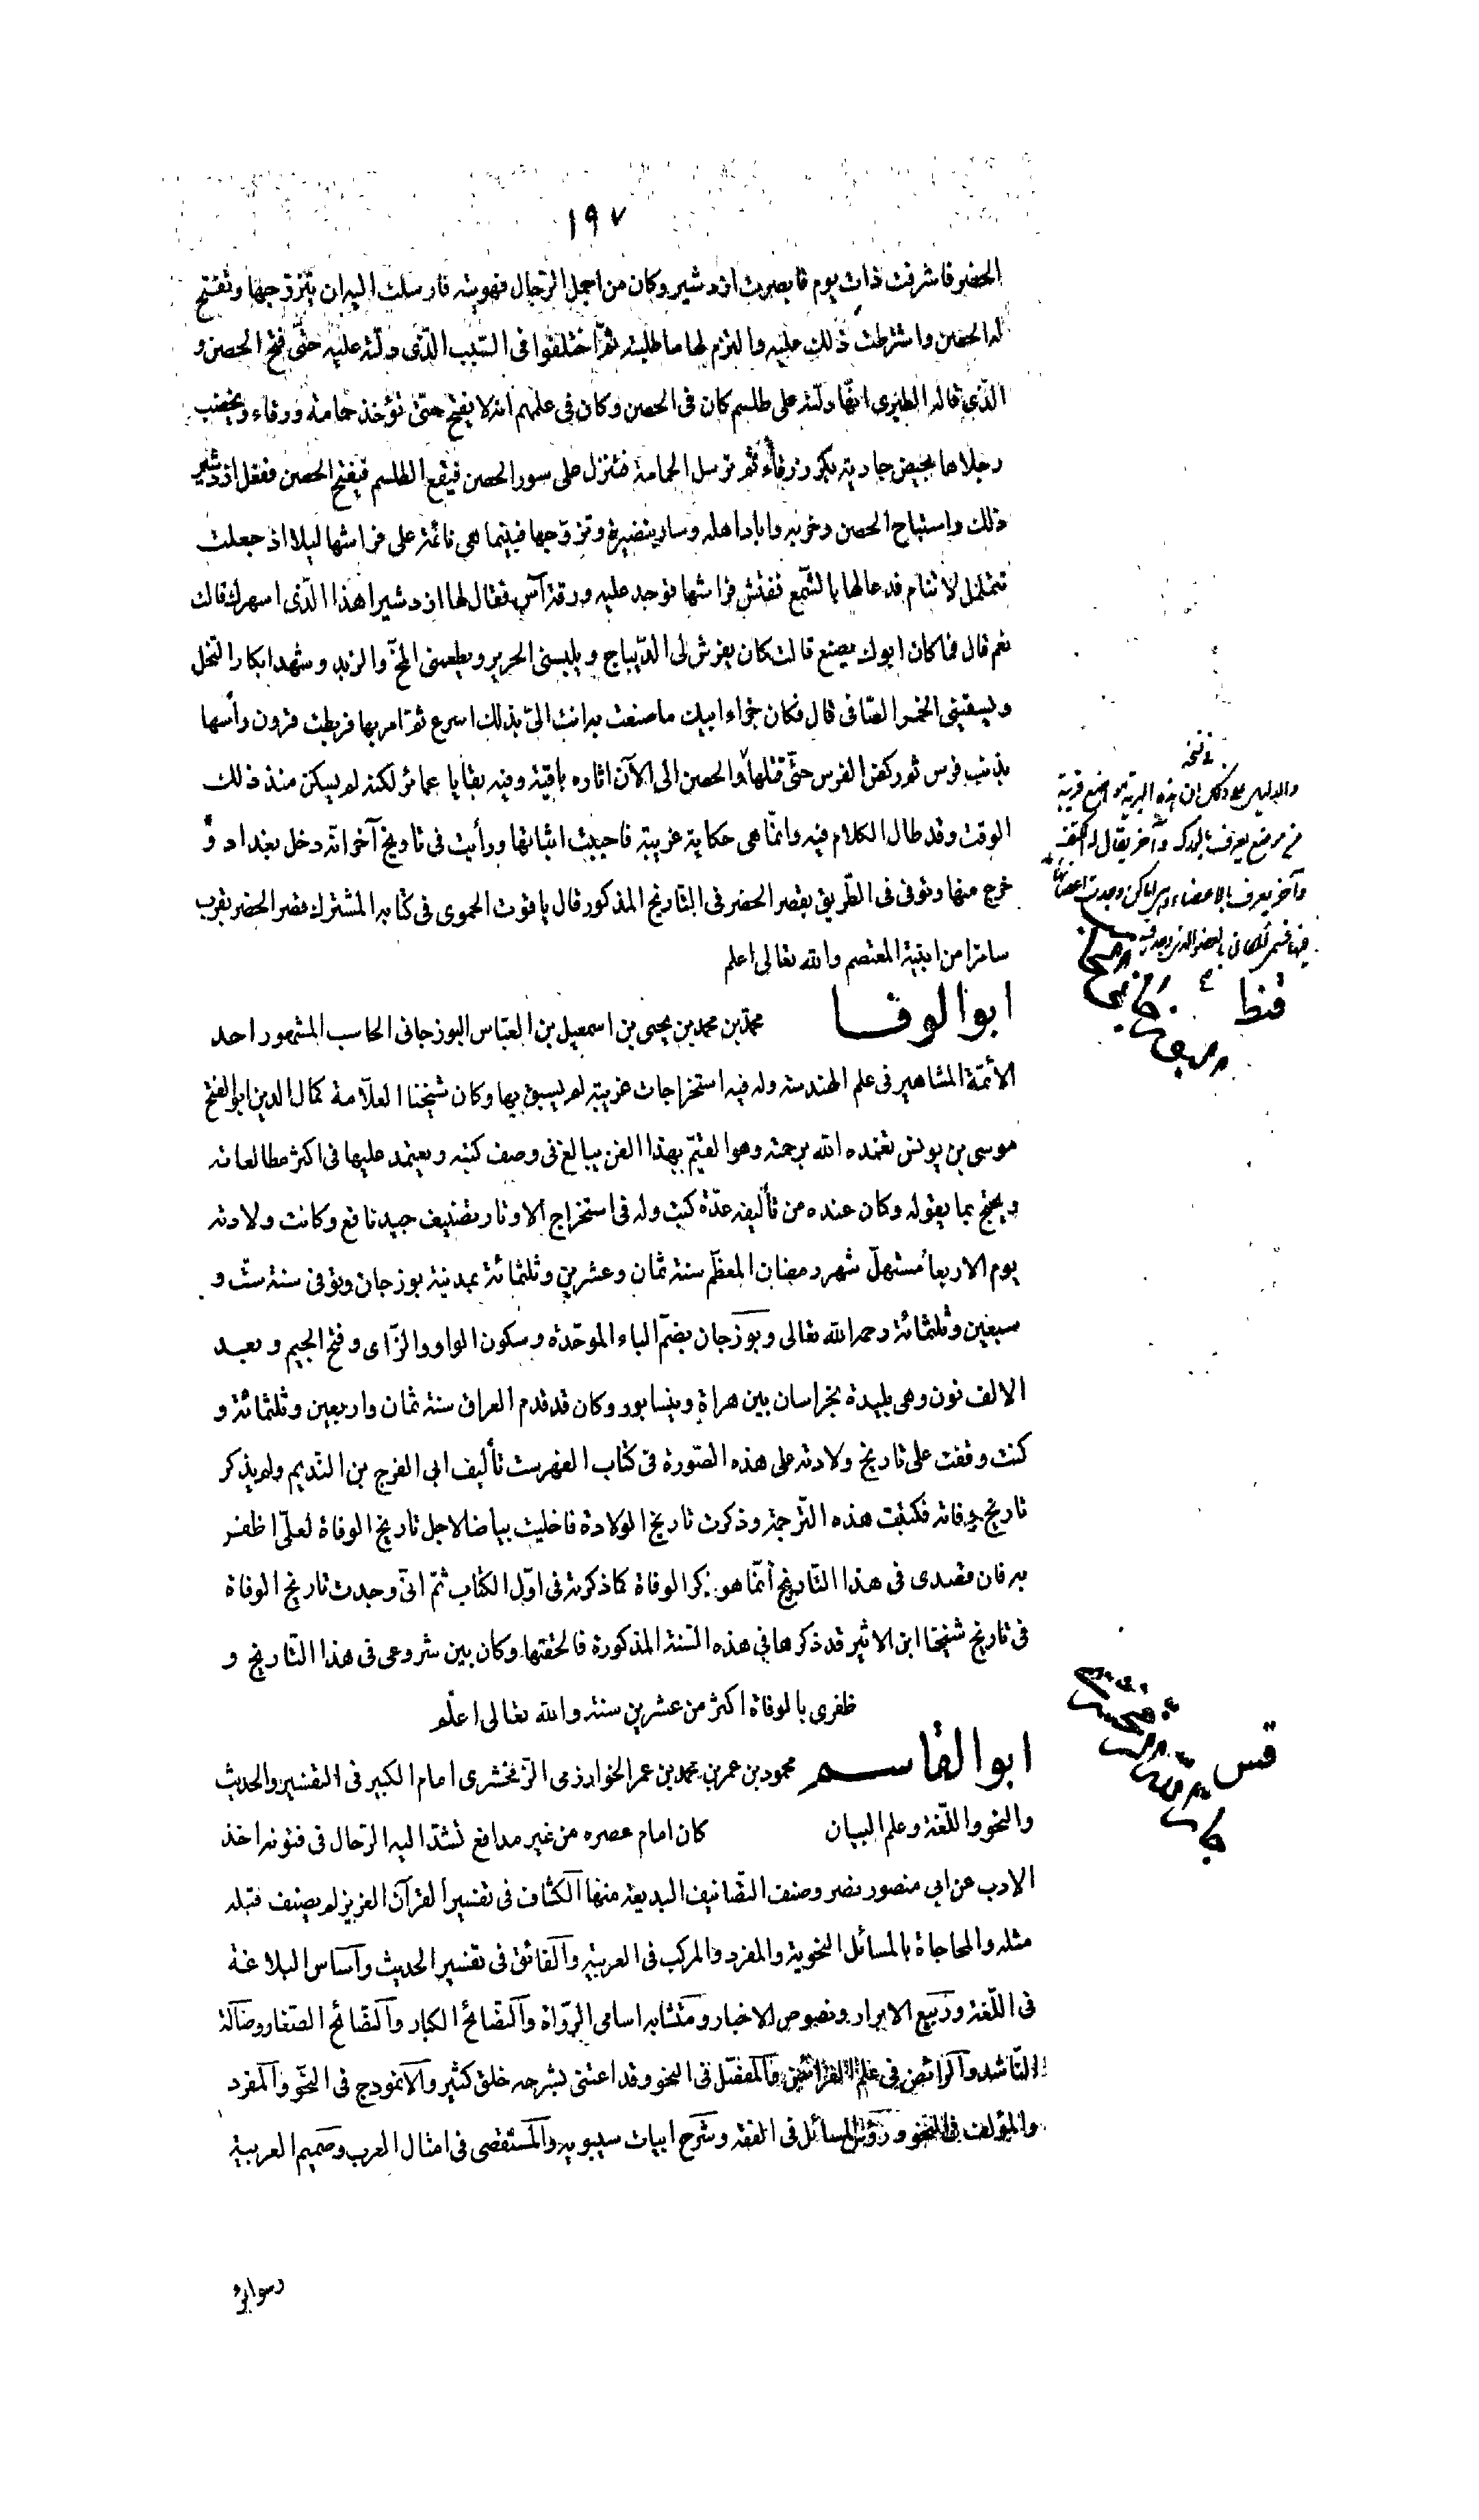 ١٩٧
الحضر فاشرفت ذات يوم فابصرت ازدشير وكان من اجمل الرّجال فهويته فارسلت اليه ان يتزوّجها وتفتح
له الحصن واشترطت ذلك عليه والتزم لها ما طلبته ثمّ اختلفوا فى السّبب الّذى دلّته عليه حتّى فتح الحصن و
الّذى قاله الطبرى انّها دلّته على طلسم كان فى الحصن وكان فى علمهم انه لا يفتح حتّى تؤخذ حمامة ورقاء ويخضب
رجلاها بحيض جارية بكر زرقاء ثمّ ترسل الحمامة فتنزل على سور الحصن فيقع الطلسم فيفتح الحصن ففعل ازدشير
ذلك واستباح الحصن وخربه واباد اهله وسار بنضيرة وتزوّجها فبينما هى نائمة على فراشها ليلا اذ جعلت
تتململ لا تنام فدعا لها بالشّمع ففتش فراشها فوجد عليه ورقة آس فقال لها ازدشير اهذا الّذى اسهرك قالت
نعم قال فما كان ابوك يصنع قالت كان يفرش لى الدّيباج ويلبسنى الحرير ويطعمنى المخّ والزبد وشهد ابكار النّحل
ويسقينى الخمر الصّافى قال فكان جزاء ابيك ما صنعت به انت الىّ بذلك اسرع ثمّ امر بها فربطت قرون رأسها
بذنب فرس ثم ركض الفرس حتّى قتلها والحصن الى الآن اثاره باقية وفيه بقايا عمائر لكنه لم يسكن منذ ذلك
الوقت وقد طال الكلام فيه وانّما هى حكاية غريبة فاحببت اثباتها ورأيت فى تاريخ آخر انّه دخل بغداد و
خرج منها وتوفى فى الطّريق بقصر الحضر فى التاريخ المذكور قال ياقوت الحموى فى كتابه المشترك قصر الحضر بقرب
سامرا من ابنية المعتصم والله تعالى اعلم
ابو الوفا محمّد بن محمد بن يحيى بن اسمعيل بن العبّاس البوزجانى الحاسب المشهور احد
الأئمّة المشاهير فى علم الهندسة وله فيه استخراجات غريبة لم يسبق بها وكان شيخنا العلّامة كمال الدين ابو الفتح
موسى بن يونس تغمّده الله برحمته وهو القيّم بهذا الفن يبالغ فى وصف كتبه ويعتمد عليها فى اكثر مطالعاته
ويحتج بما يقوله وكان عنده من تأليفه عدّة كتب وله فى استخراج الاوتار تصنيف جيد نافع وكانت ولادته
يوم الاربعا مستهلّ شهر رمضان المعظّم سنة ثمان وعشرين وثلثمائة بمدينة بوزجان وتوفى سنة ستّ و
سبعين وثلثمائة رحمه الله تعالى وبوزجان بضمّ الباء الموحّدة وسكون الواو والزّاى وفتح الجيم وبعد
الالف نون وهى بليدة بخراسان بين هراة ونيسابور وكان قد قدم العراق سنة ثمان واربعين وثلثمائة و
كنت وقفت على تاريخ ولادته على هذه الصّورة فى كتاب الفهرست تأليف ابى الفرج بن النّديم ولم يذكر
تاريخ وفاته فكتبت هذه التّرجمة وذكرت تاريخ الولادة فاخليت بياضا لاجل تاريخ الوفاة لعلّى اظفر
به فان مقصدى فى هذا التّاريخ انّما هو ذكر الوفاة كما ذكرته فى اوّل الكتاب ثمّ انّى وجدت تاريخ الوفاة
فى تاريخ شيخنا ابن الاثير قد ذكرها فى هذه السّنة المذكورة فالحقتها وكان بين شروعى فى هذا التّاريخ و
ظفرى بالوفاة اكثر من عشرين سنة والله تعالى اعلم
ابو القاسم محمود بن عمر بن محمد بن عمر الخوارزمى الزّمخشرى امام الكبير فى التفسير والحديث
والنحو واللّغة وعلم البيان كان امام عصره من غير مدافع تشدّ اليه الرّحال فى فنونه اخذ
الادب عن ابى منصور نصر وصنف التّصانيف البديعة منها الكشاف فى تفسير القرآن العزيز لم يصنف قبله
مثله والمحاجاة بالمسائل النحوية والمفرد والمركب فى العربية والفائق فى تفسير الحديث واساس البلاغة
فى اللّغة وربيع الابرار ونصوص الاخبار ومتشابه اسامى الرّواة والنصّائح الكبار والنصّائح الصّغار وضالّة
النّاشد والرائض فى علم الفرائض والمفصّل فى النحو وقد اعتنى بشرحه خلق كثير والانموذج فى النّحو والمفرد
والمؤلف فى النحو ورؤس المسائل فى الفقه وشرح ابيات سيبويه والمستقصى فى امثال العرب وصميم العربية
وسوائر